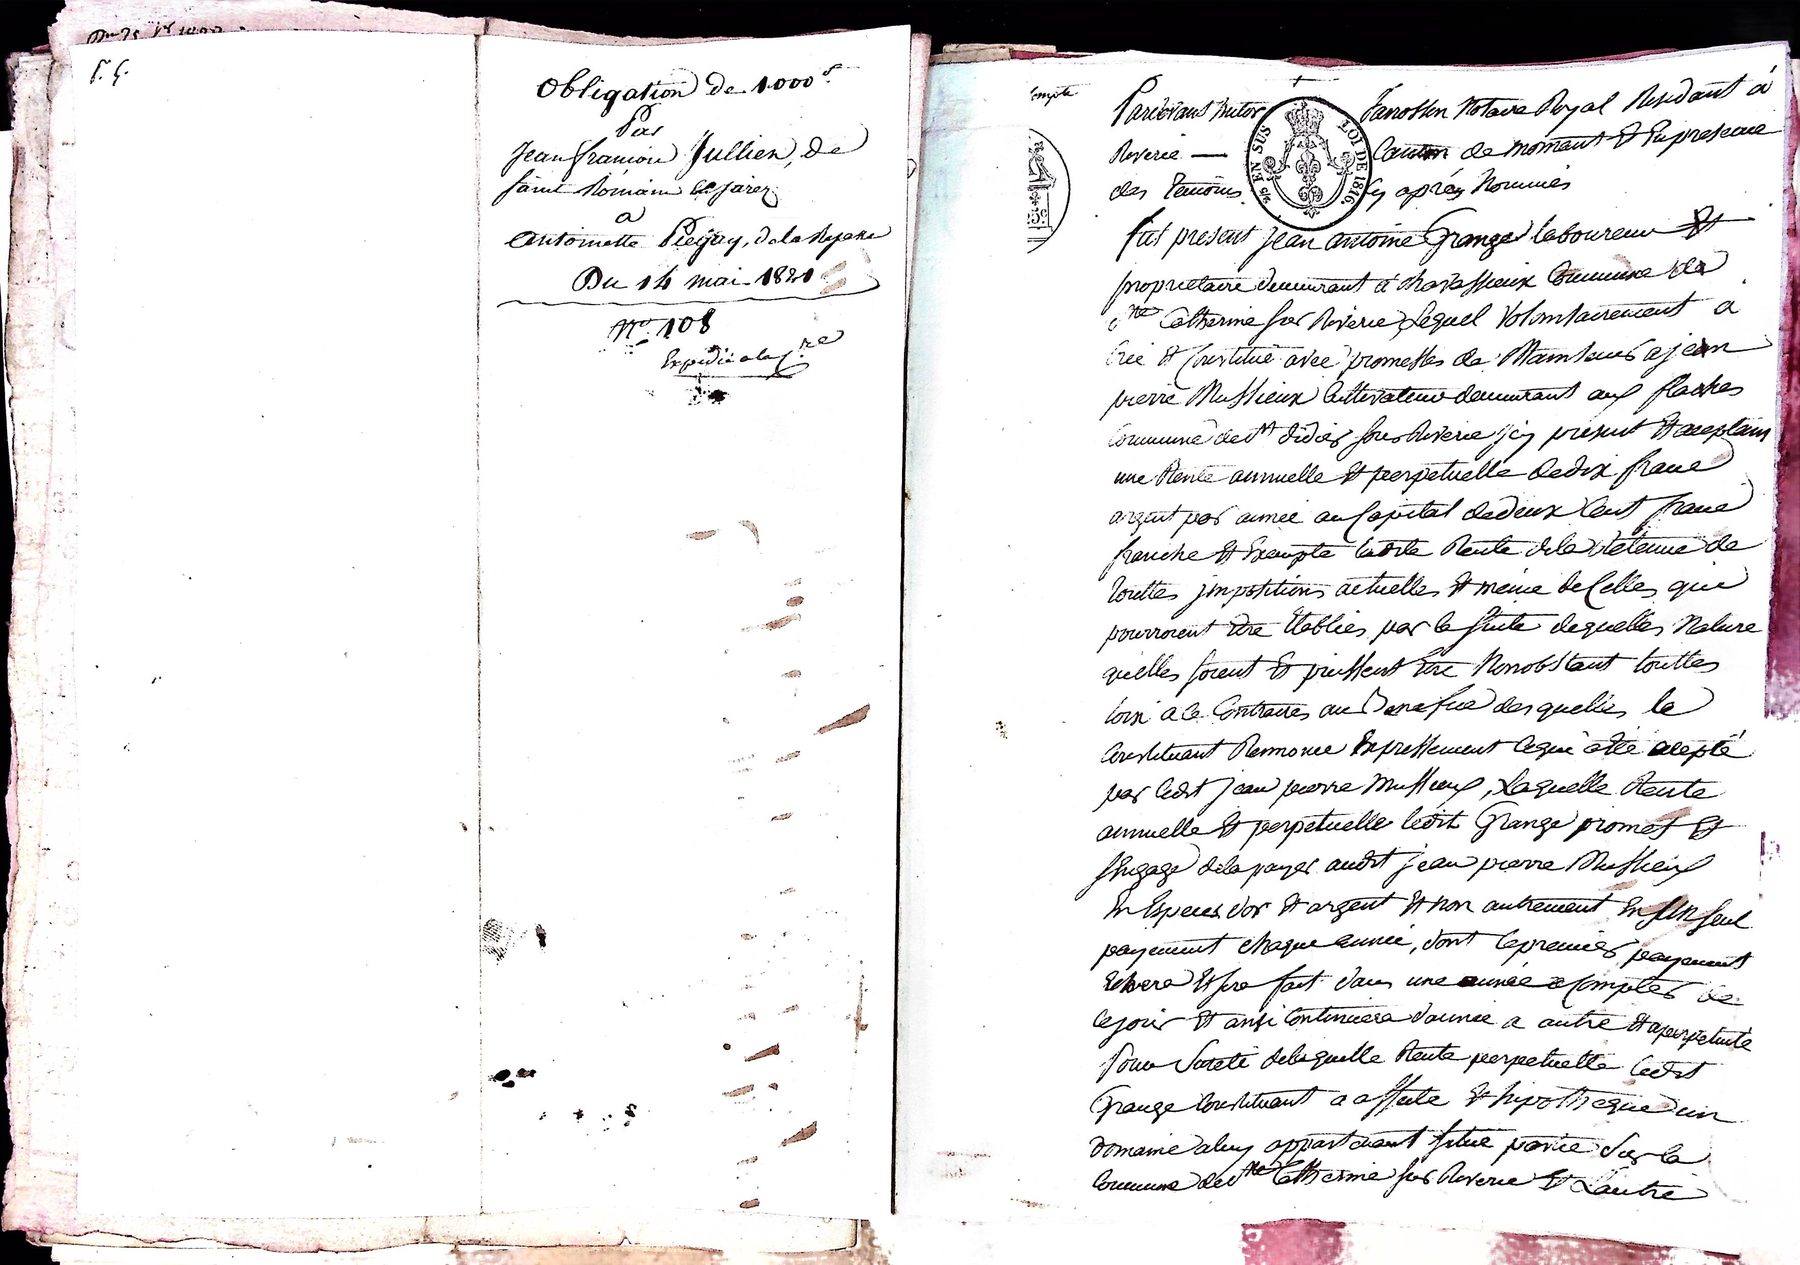 P. G.
Obligation de 1000 f.
Par
Jean françois Jullien, de
saint Romain en jarez
a
antoinette Pieijay, de la
Du 14 mai 1821
No. 108
Expedié a la
compte
Pardevant victor Notaire Royal Residant à
Riverie — Canton de mornant Et En presence
des Temoins Cy aprés Nommés
2/10 EN SUS
LOI DE 1816
fut present jean antoine Grange laboureur Et
proprietaire demeurant a chavassieux Commune de
Ste Catherine sur Riverie, Lequel Volontairement a
Créé Et Constitué avec promesses de Maintenir a jean
pierre Mussieux Cultivateur demeurant aux flaches
Commune de St didier sous Riverie jcy present Et aceptant
une Rente annuelle Et perpetuelle de dix franc
argent par année au Capital de deux Cent franc
franche Et Exempte ladite Rente de la Retenue de
touttes jmpositions actuelles Et même de Celles qui
pourroient Etre Etablies par la suite de quelles Nature
quelles soient Et puissent Etre Nonobstant touttes
loix a ce Contraires au Benefice des quelles le
Constituant Renonce Expressement ce qui a été acepté
par ledit jean pierre Mussieux, Laquelle Rente
annuelle Et perpetuelle ledit Grange promet Et
sEngage de la payer audit jean pierre Mussieux
En Especes d'or Et argent Et non autrement En un seul
payement chaque année, dont le premier payement
Echera Et sera fait dans une année a Compter de
ce jour Et ansi Continuera d'année a autre Et a perpetuité
Pour Sureté de laquelle Rente perpetuelle ledit
Grange Constituant a affecté Et hipothequé un
Domaine a luy appartenant situé partie sur la
Commune de Ste Catherine sur Riverie Et Lautre